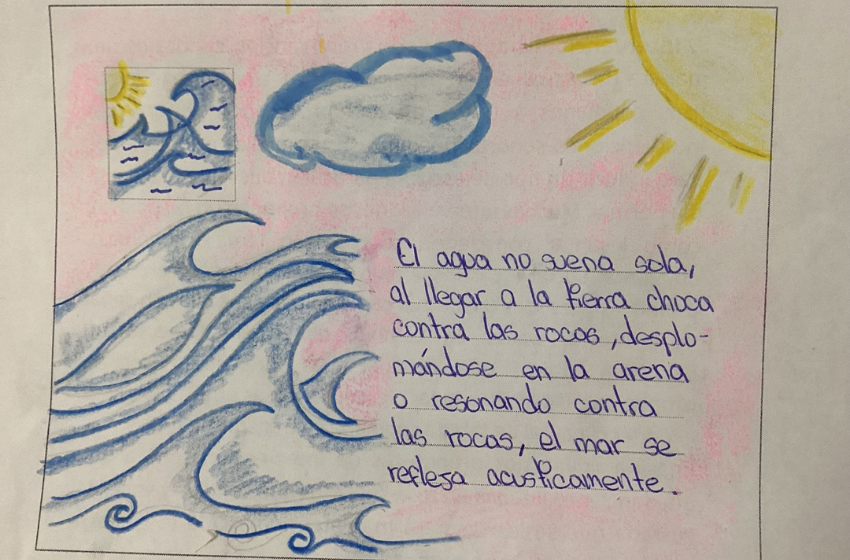 El agua no suena sola,
al llegar a la tierra choca
contra las rocas, desplo-
mándose en la arena
o resonando contra
las rocas, el mar se
reflesa acusticamente.